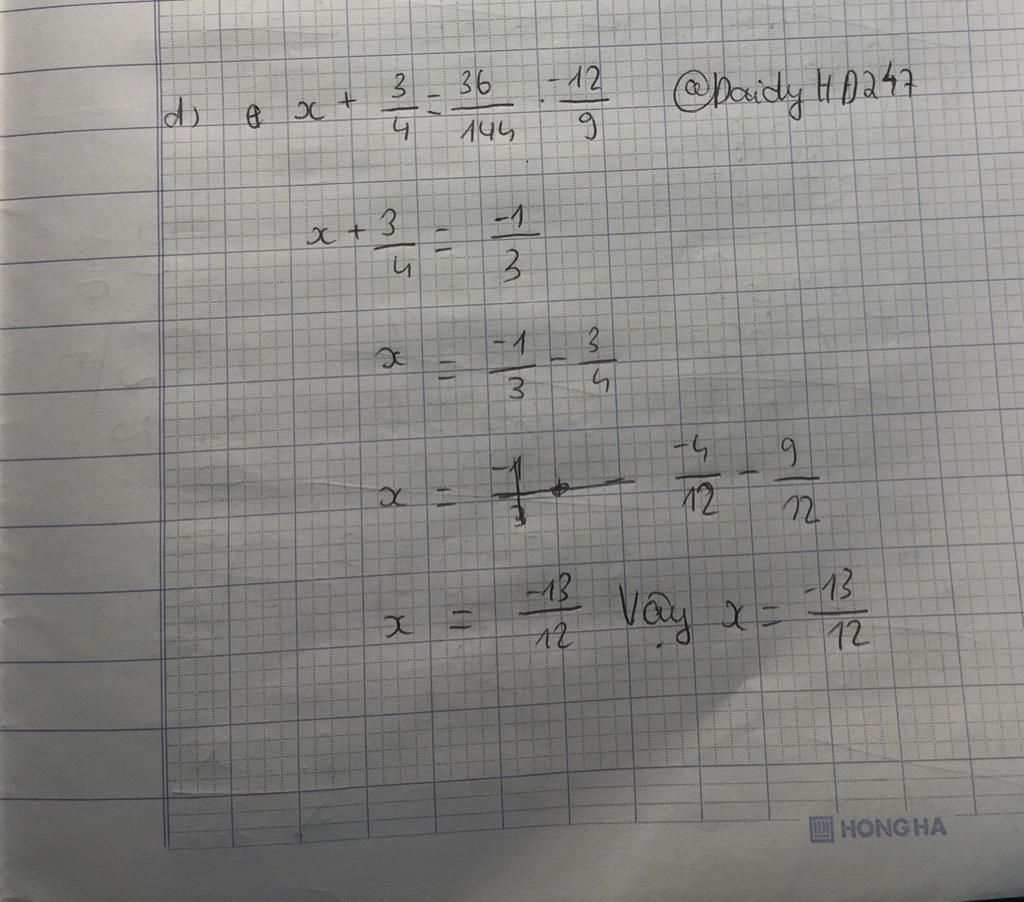 d) x + 3/4 = 36/144 . -12/9 @DaidyHD247
x + 3/4 = -1/3
x = -1/3 - 3/4
x = -4/12 - 9/12
x = -13/12 Vậy x = -13/12
HONG HA